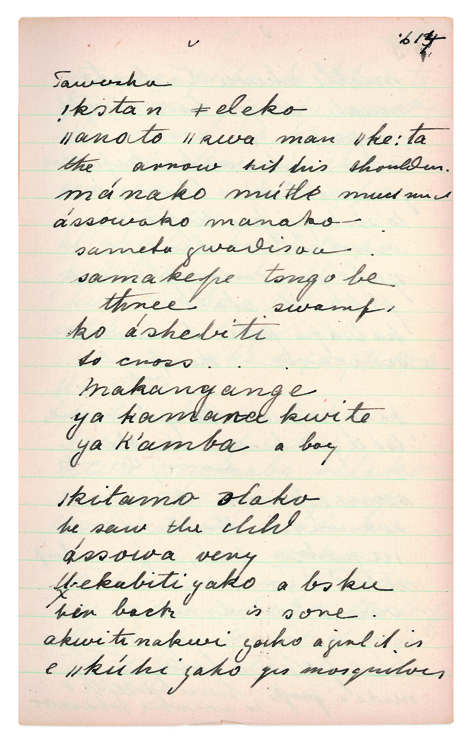 614
Tawosha
!kstan ǂeleko
ǁanato ǁkwa man ǁke:ta
the arrow hit his shoulder.
mánako mútlé
ássowako manako
sameta gwadisoa
samakepe tsngobe
three swamp,
ko áshebiti
to cross
Makangange
ya kamana kwite
ya K'amba a boy
!kitamo olako
he saw the child
ássowa very
bekabitiyako a bsku
her back is sore.
akwitenakwi yako a girl it is
e ǁkúhi yako yes mosquitoes